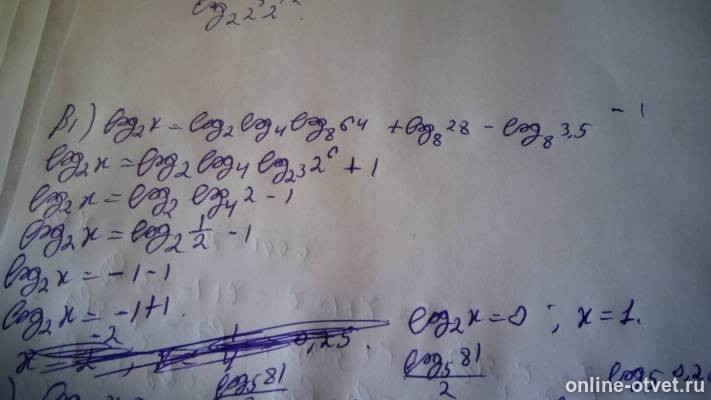 log₂ 2
β₁) log₂x = log₂ log₄ log₈ 64 + log₈ 28 - log₈ 3,5 - 1
log₂x = log₂ log₄ log₂³ 2⁶ + 1
log₂x = log₂ log₄ 2 - 1
log₂x = log₂ 1/2 - 1
log₂x = -1 - 1
log₂x = -1 + 1. log₂x = 0 ; x = 1.
x = 2⁻², 1/4 0,25.
log₅81 log₅81/2 log₅ 0,2
online-otvet.ru